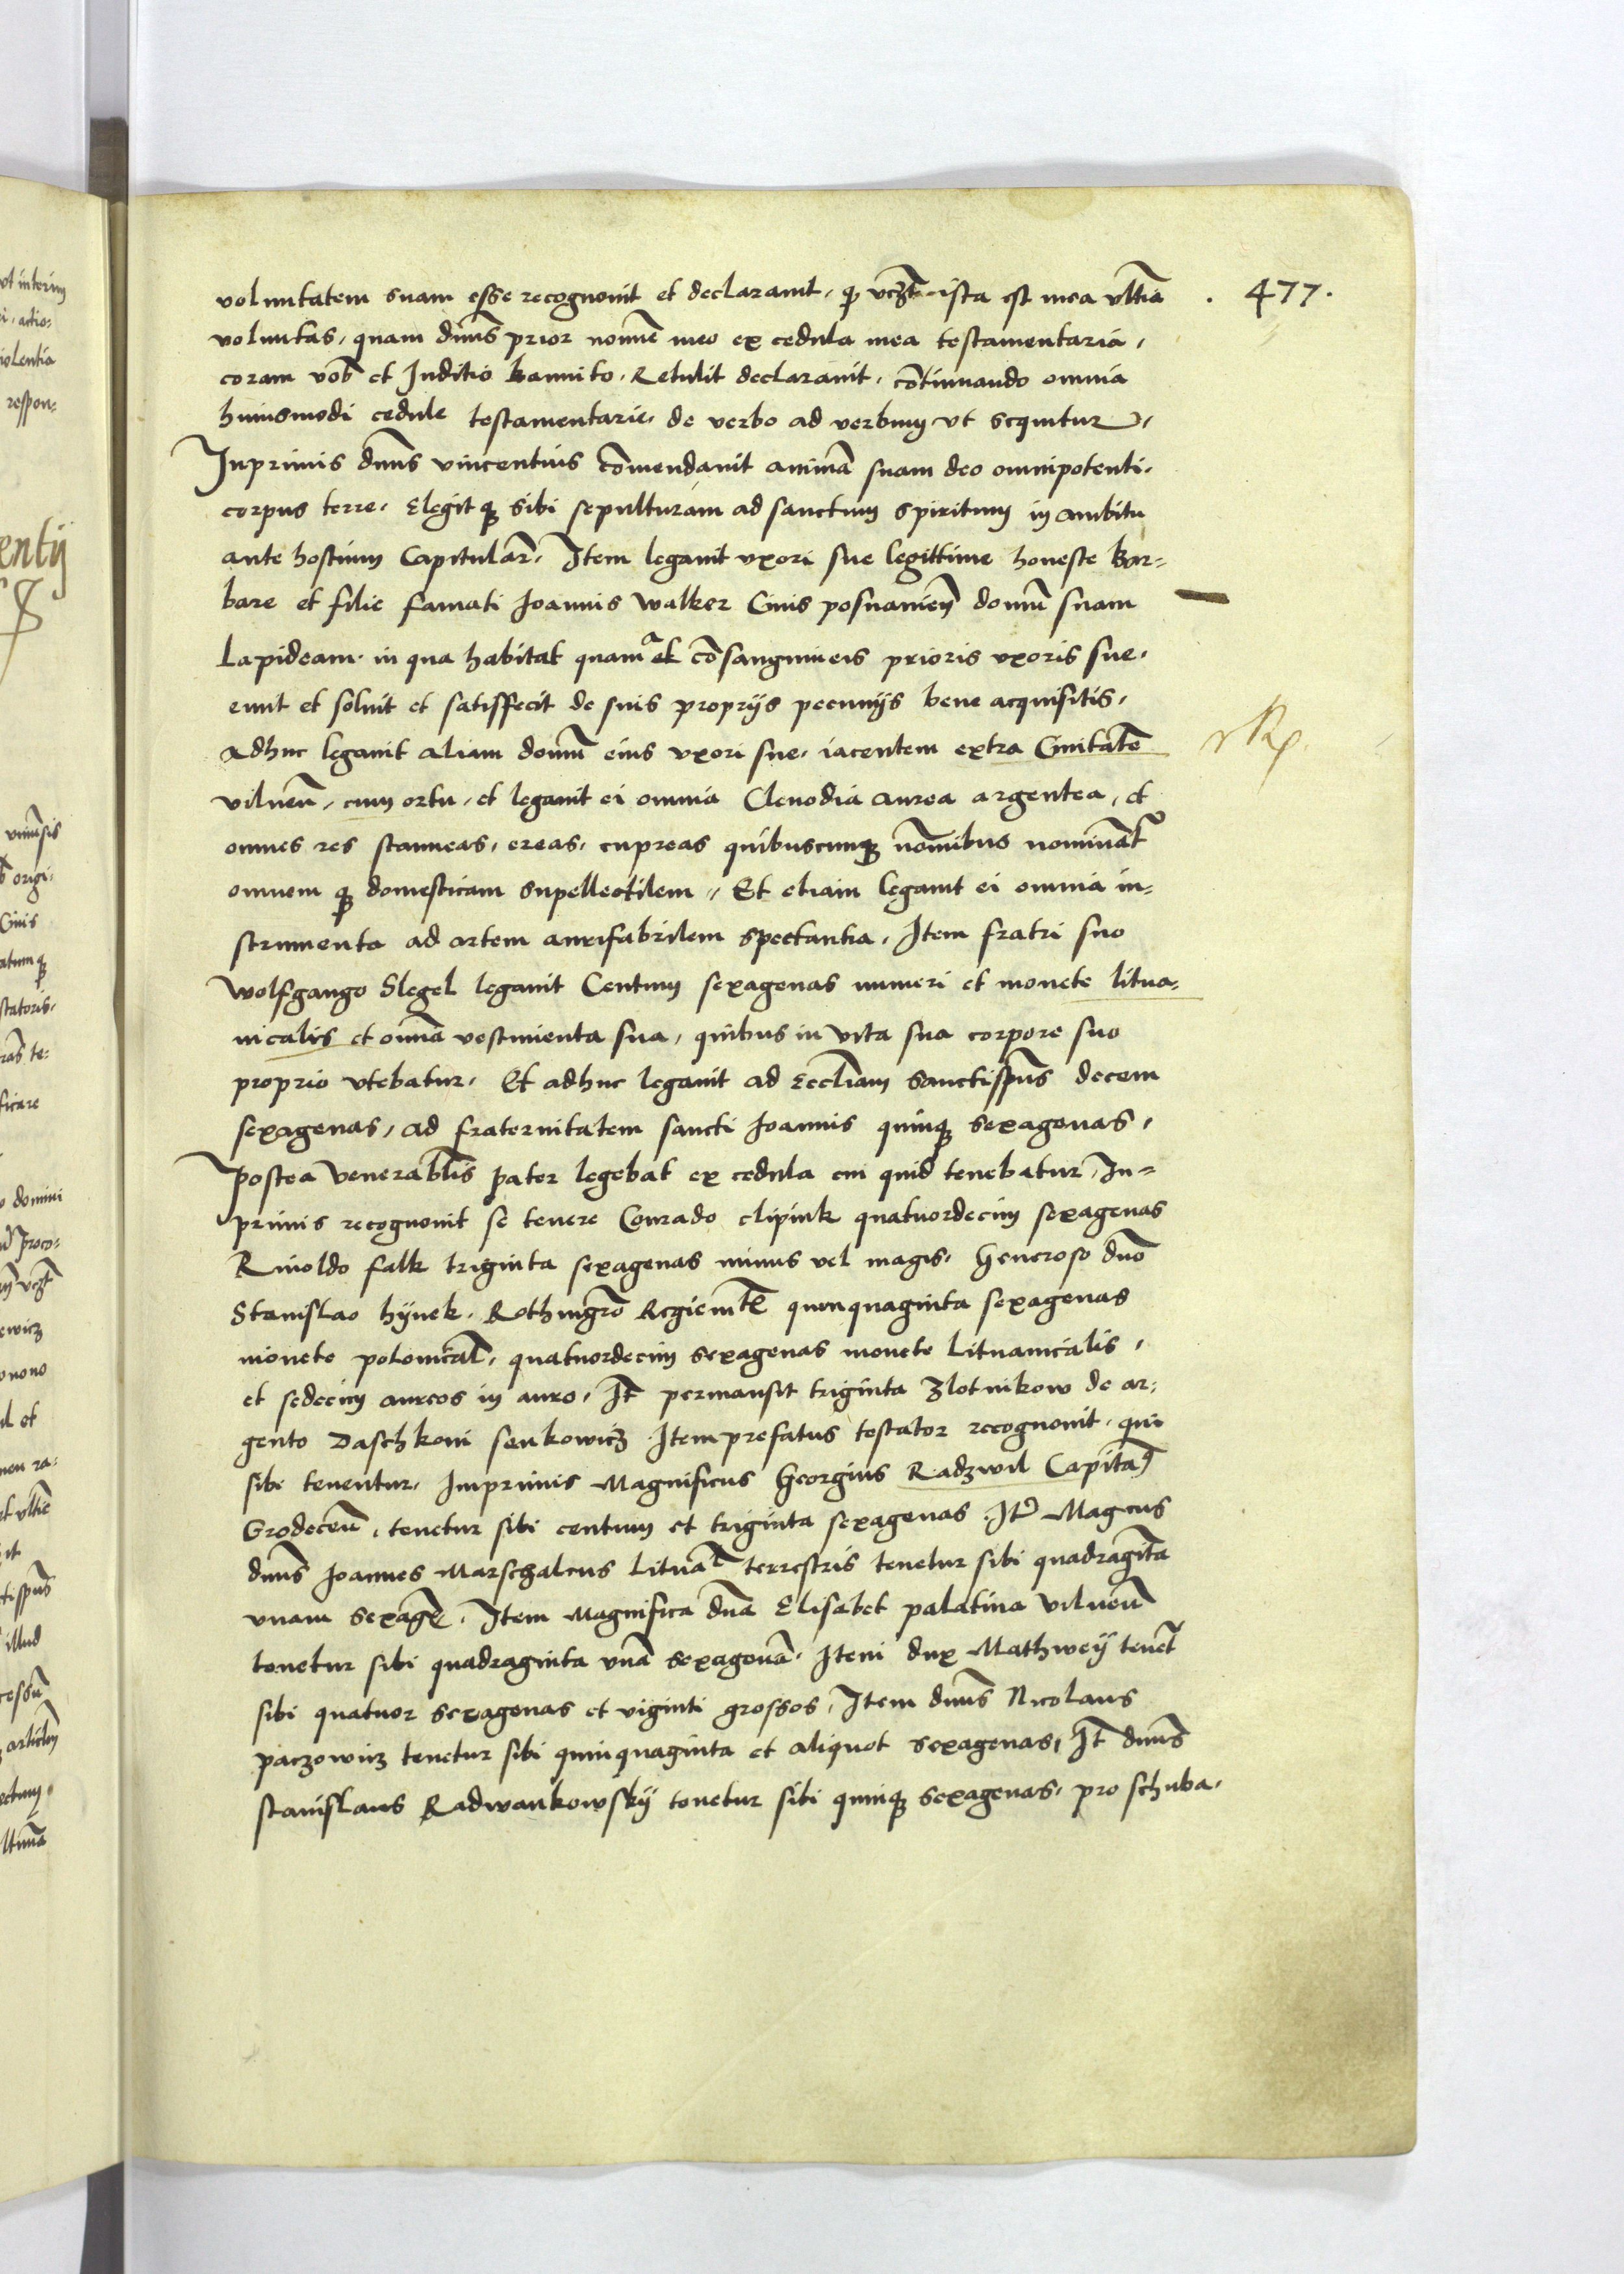 voluntatem suam esse recognouit et declarauit, q̃ vcz̃ ista est mea vltiã . 477.
voluntas, quam dñns prior noiñe meo ex cedula mea testamentaria,
coram vob̃ et Inditio bannito. Retulit declarauit. cõtinuando omnia
huiusmodi cedule testamentarie. de verbo ad verbum vt sequitur,
Inprimis dñns vincentius cõmendauit animã suam deo omnipotenti.
corpus terre. Elegitq; sibi sepulturam ad sanctum spiritum in ambitu
ante hostium Capitular̃. Item legauit vxori sue legittime honeste Bar-
bare et filie famati Ioannis Walker Ciuis posnanieñ domũ suam
Lapideam. in qua habitat quam a cõsanguineis prioris vxoris sue.
emit et soluit et satisffecit de suis proprijs pecunijs bene acquisitis,
Adhuc legauit aliam domũ eius vxori sue. iacentem extra Ciuitatẽ
vilneñ, cum ortu, et legauit ei omnia Clenodia aurea argentea, et
omnes res stanneas, ereas, cupreas quibuscunq; nõminibus nominãt
omnem q; domesticam supellectilem. Et etiam legauit ei omnia in-
strumenta ad artem aurifabrilem spectantia. Item fratri suo
Wolfgango Slegel legauit Centum sexagenas numeri et monete litua-
nicalis et omñia vestimenta sua, quibus in vita sua corpore suo
proprio vtebatur. Et adhuc legauit ad Eccliam Sanctispũs decem
sexagenas, ad fraternitatem sancti Ioannis quinq; sexagenas,
Postea Venerablis pater legebat ex cedula cui quid tenebatur, In-
primis recognouit se tenere Conrado clipink quatuordecim sexagenas
Rinoldo falk triginta sexagenas minus vel magis. Generoso dño
Stanislao hÿnek. Rothmgrõ Regiemtẽ quinquaginta sexagenas
monete polonical̃, quatuordecim sexagenas monete Lituanicalis,
et sedecim aureos in auro. It̃ permansit triginta Zlotnikow de ar-
gento Daschkoni senkowicz Item prefatus testator recognouit. qui
sibi tenentur. Imprimis Magnificus Georgius Radzwil Capitã
Grodeceñ, tenetur sibi centum et triginta sexagenas. It̃ Magcus
dñns Ioannes Marschalcus Lituãl terrestris tenetur sibi quadragĩta
vnam sexagẽ. Item Magnifica dña Elisabet palatina Vilneñ
tenetur sibi quadraginta vnã sexagenã. Item dux Mathweÿ tenet̃
sibi quatuor sexagenas et viginti grossos, Item dñns Nicolaus
paczowicz tenetur sibi quinquaginta et aliquot sexagenas, It̃ dñns
stanislaus Radwankowskÿ tenetur sibi quinq; sexagenas, pro schuba.